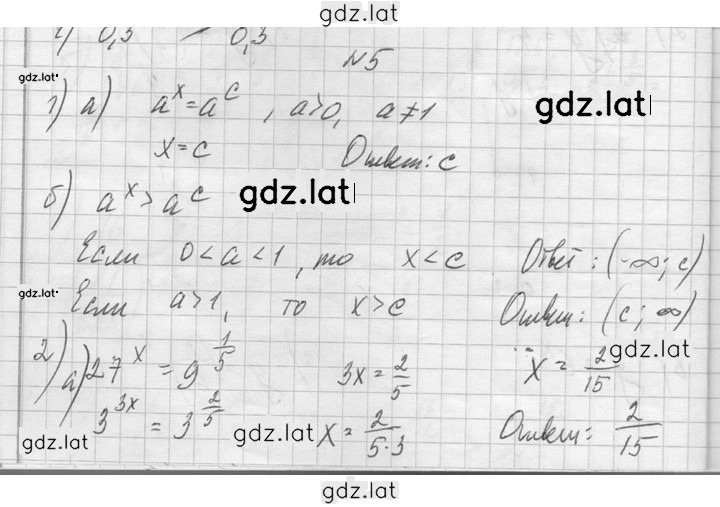 gdz.lat
г) 0,3 > 0,3
№5
gdz.lat
1) а) a^x = a^c, a>0, a≠1 gdz.lat
x=c Ответ: c
б) a^x > a^c gdz.lat
Если 0<a<1, то x<c Ответ: (-∞; c)
gdz.lat
Если a>1, то x>c Ответ: (c; ∞)
gdz.lat
2) а) 27^x = 9^(1/5) 3x = 2/5 x = 2/15
3^(3x) = 3^(2/5) x = 2/(5·3) Ответ: 2/15
gdz.lat gdz.lat gdz.lat
gdz.lat